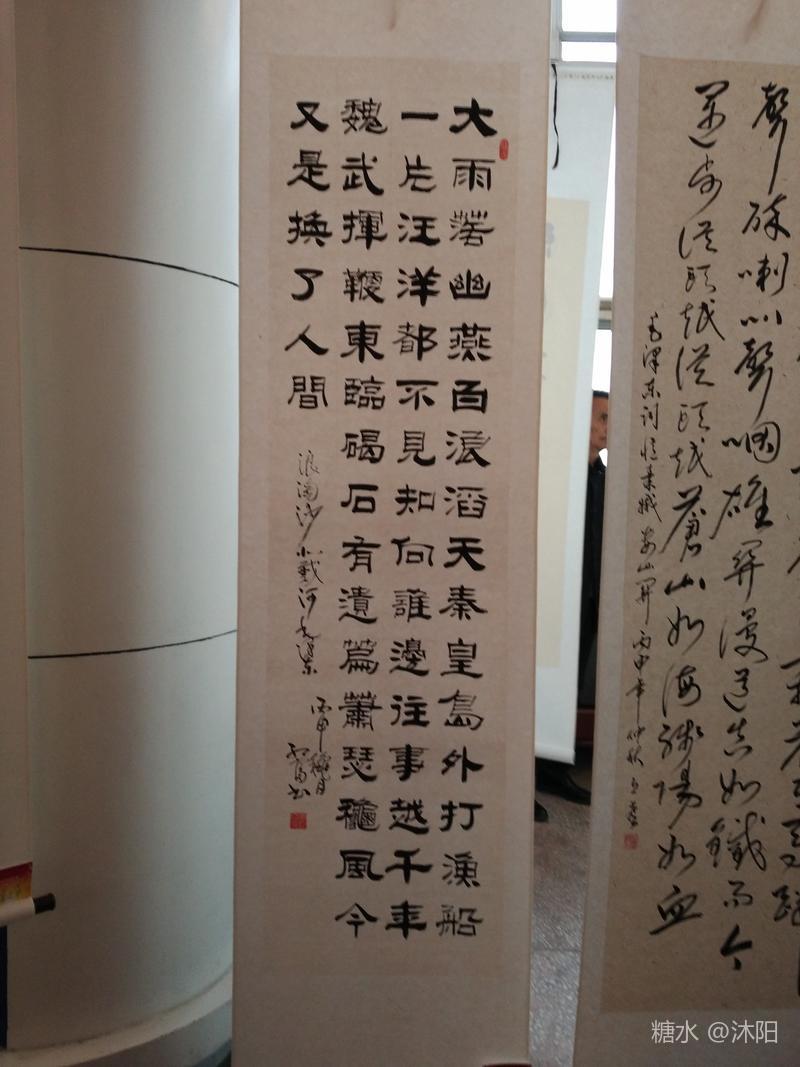 聲碎喇叭聲咽雄関漫道真如鐵而今
邁步從頭越從頭越蒼山如海殘陽如血
毛澤东词憶秦娥娄山関 丙申年仲秋
大雨落幽燕百浪滔天秦皇島外打漁船
一片汪洋都不見知向誰邊往事越千年
魏武揮鞭東臨碣石有遺篇蕭瑟龝風今
又是換了人間
浪淘沙北戴河毛澤東
丙申龝月
糖水 @沐阳